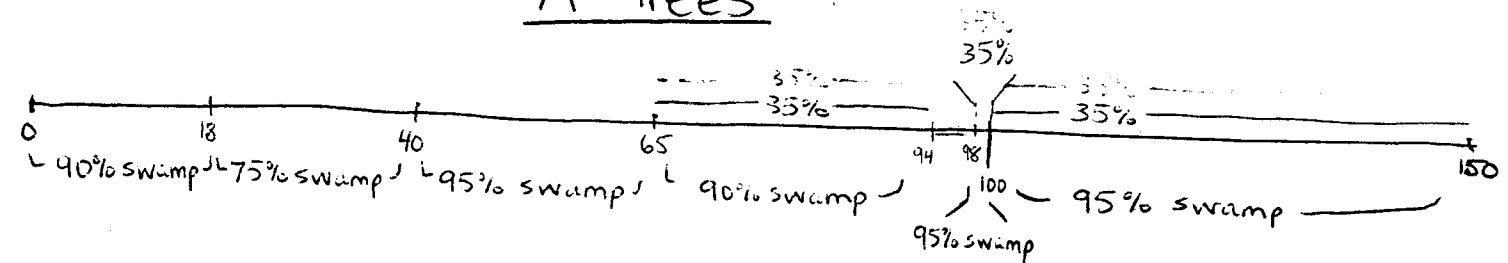 Trees
35%
35%
35% 35%
0 18 40 65 94 98 100 150
90% swamp 75% swamp 95% swamp 90% swamp 95% swamp
95% swamp